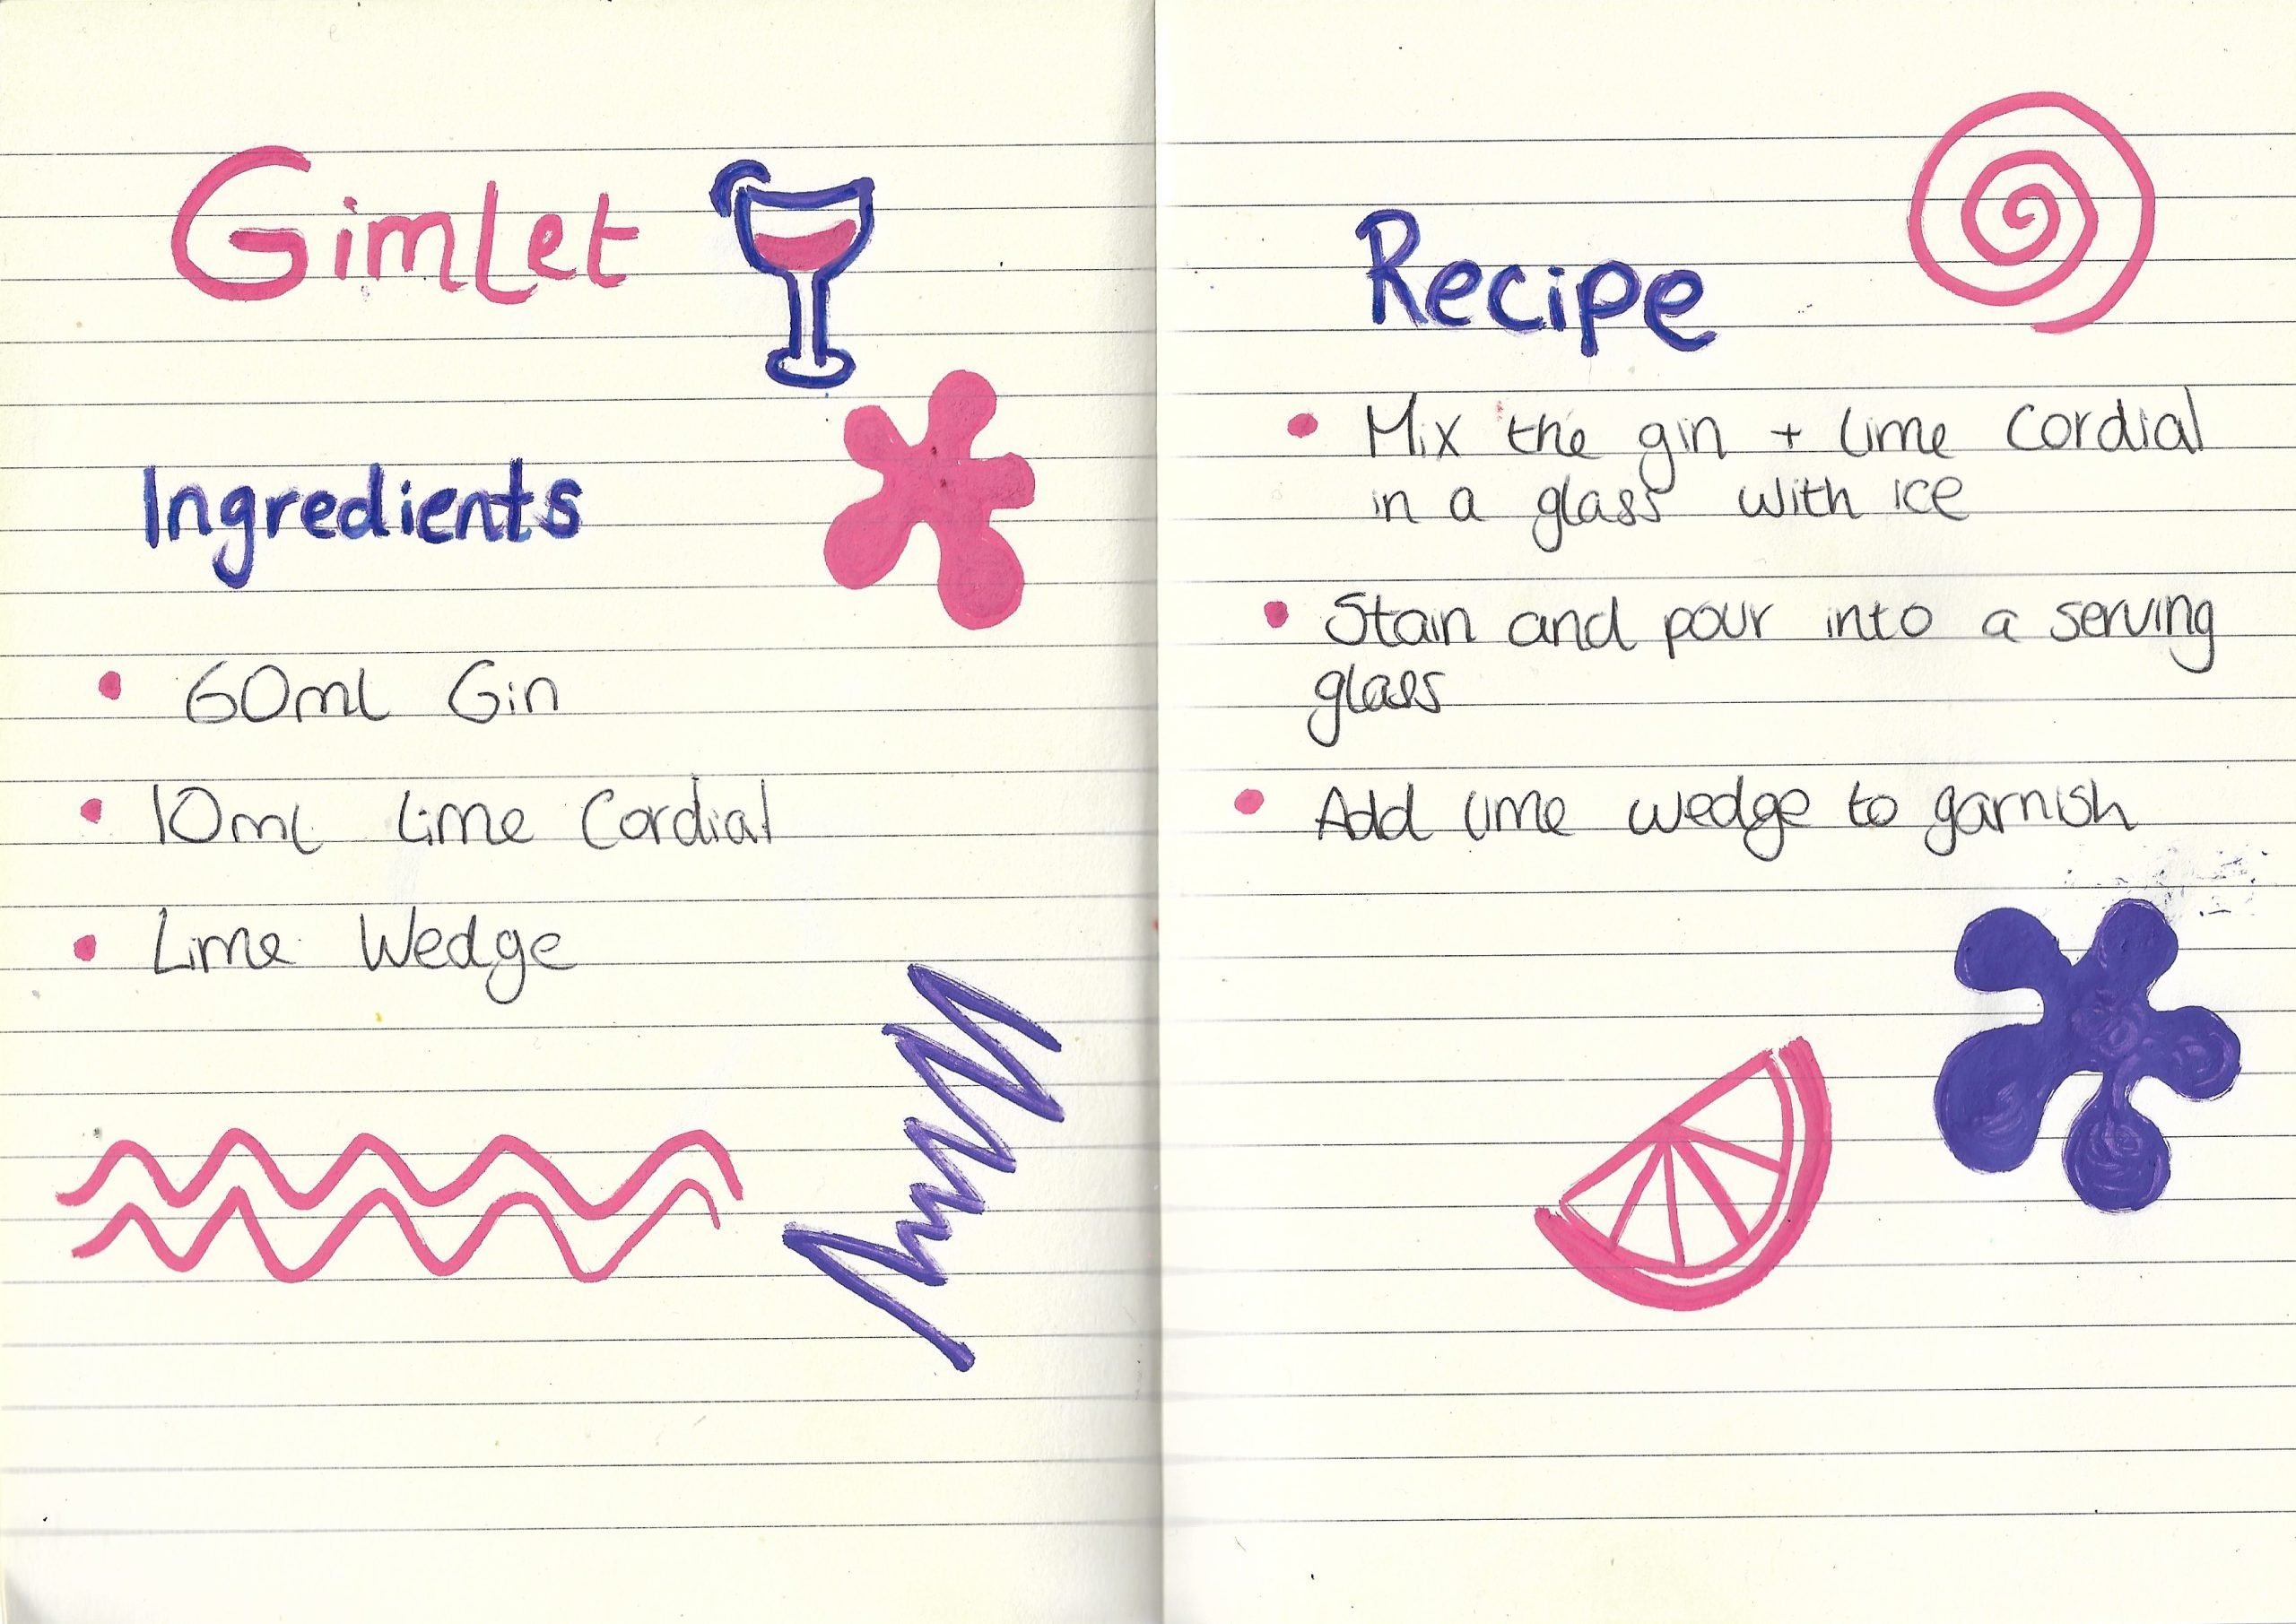 Gimlet
Ingredients
• 60ml Gin
• 10ml Lime Cordial
• Lime Wedge
Recipe
• Mix the gin + lime cordial
in a glass with ice
• Stain and pour into a serving
glass
• Add lime wedge to garnish